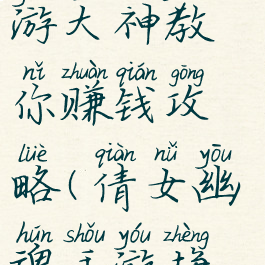 游大神教
nǐ zhuàn qián gōng
你赚钱攻
lüè qiàn nǚ yōu
略(倩女幽
hún shǒu yóu zhèng
魂手游